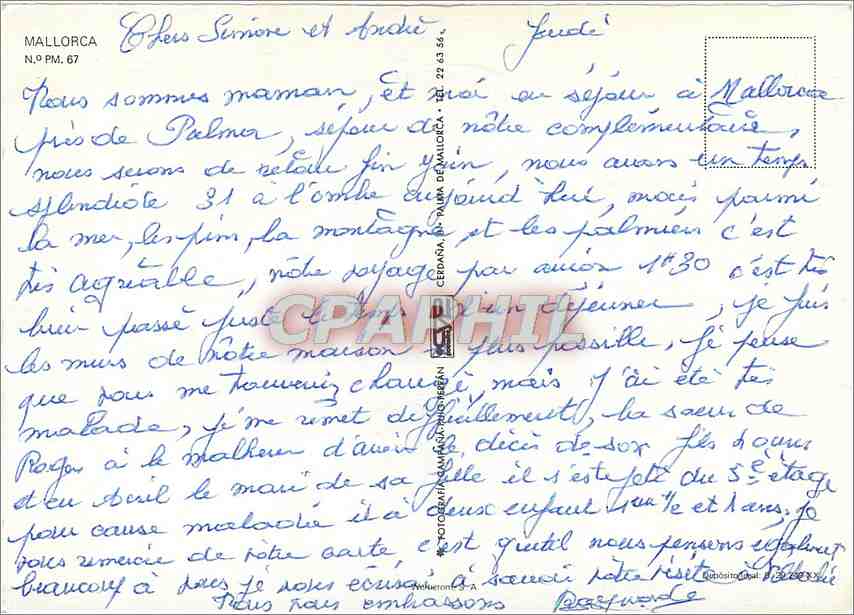 MALLORCA
N.º PM. 67
Chers Simone et André Jeudi
Nous sommes maman, et moi en séjour à Mallorca
près de Palma, séjour de nôtre complémentaire,
nous serons de retour fin juin, nous avons un temps
splendide 31 à l'ombre aujourd'hui, mais parmi
la mer, les pins, la montagne, et les palmiers c'est
très agréable, nôtre voyage par avion 1H30 c'est très
bien passé juste le temps d'un déjeuner, je fuis
les murs de nôtre maison plus possible, je pense
que vous me trouverez changé, mais j'ai été très
malade, je me remet difficilement, la soeur de
Roger à le malheur d'avoir le décès de son fils
et en Avril le mari de sa fille il s'est jeté du 5e étage
pour cause maladie il à deux enfant 1 an 1/2 et 4 ans, je
vous remercie de vôtre carte, c'est gentil nous pensons également
beaucoup à vous je vous écrirai, à savoir vôtre visite
Nous vous embrassons Raymonde
FOTOGRAFIA CAMPAÑA-PUIG FERRAN
CAMPAÑA
CERDAÑA, PALMA DE MALLORCA • TEL. 22 63 56
CPAPHIL
Depósito legal: B.